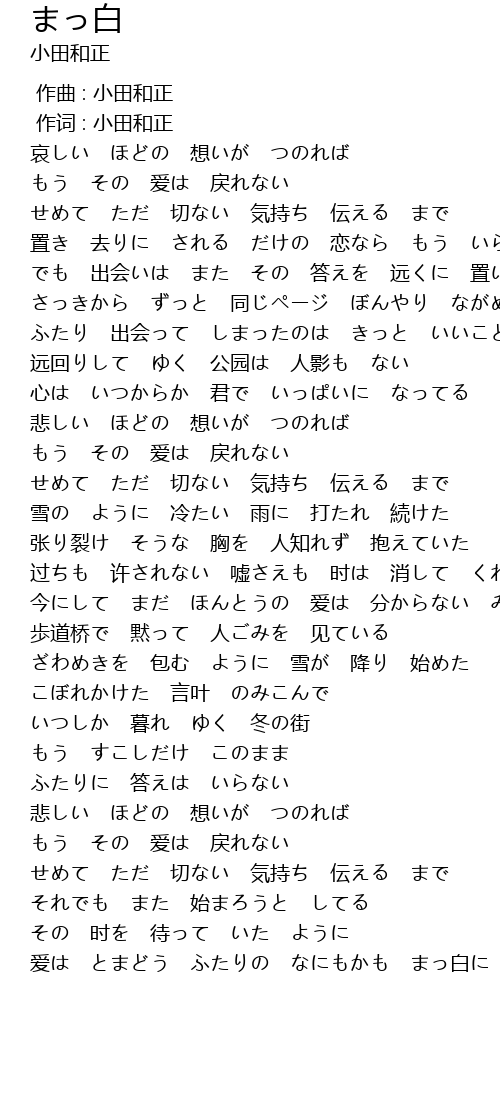 まっ白
小田和正
作曲 : 小田和正
作词 : 小田和正
哀しい　ほどの　想いが　つのれば
もう　その　爱は　戻れない
せめて　ただ　切ない　気持ち　伝える　まで
置き　去りに　される　だけの　恋なら　もう
でも　出会いは　また　その　答えを　远くに
さっきから　ずっと　同じページ　ぼんやり
ふたり　出会って　しまったのは　きっと　いいこと
远回りして　ゆく　公园は　人影も　ない
心は　いつからか　君で　いっぱいに　なってる
悲しい　ほどの　想いが　つのれば
もう　その　爱は　戻れない
せめて　ただ　切ない　気持ち　伝える　まで
雪の　ように　冷たい　雨に　打たれ　続けた
张り裂け　そうな　胸を　人知れず　抱えていた
过ちも　许されない　嘘さえも　时は　消して
今にして　まだ　ほんとうの　爱は　分からない
歩道桥で　黙って　人ごみを　见ている
ざわめきを　包む　ように　雪が　降り　始めた
こぼれかけた　言叶　のみこんで
いつしか　暮れ　ゆく　冬の街
もう　すこしだけ　このまま
ふたりに　答えは　いらない
悲しい　ほどの　想いが　つのれば
もう　その　爱は　戻れない
せめて　ただ　切ない　気持ち　伝える　まで
それでも　また　始まろうと　してる
その　时を　待って　いた　ように
爱は　とまどう　ふたりの　なにもかも　まっ白に